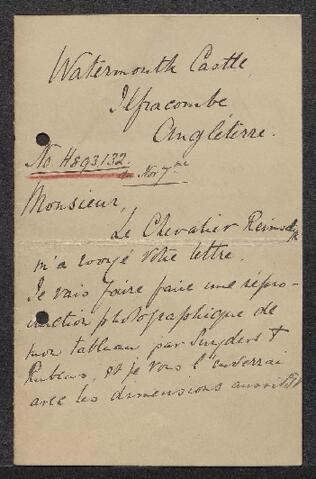 Watermouth Castle,
Ilfracombe
Angléterre.
No. H893/132.
du Nov 7me
Monsieur,
Le Chevalier
m'a envoyé votre lettre.
Je vais faire faire une répro-
duction photographique de
mon tableau par Snyders &
Rubens, et je vous l'enverrai
avec les dimensions aussitôt